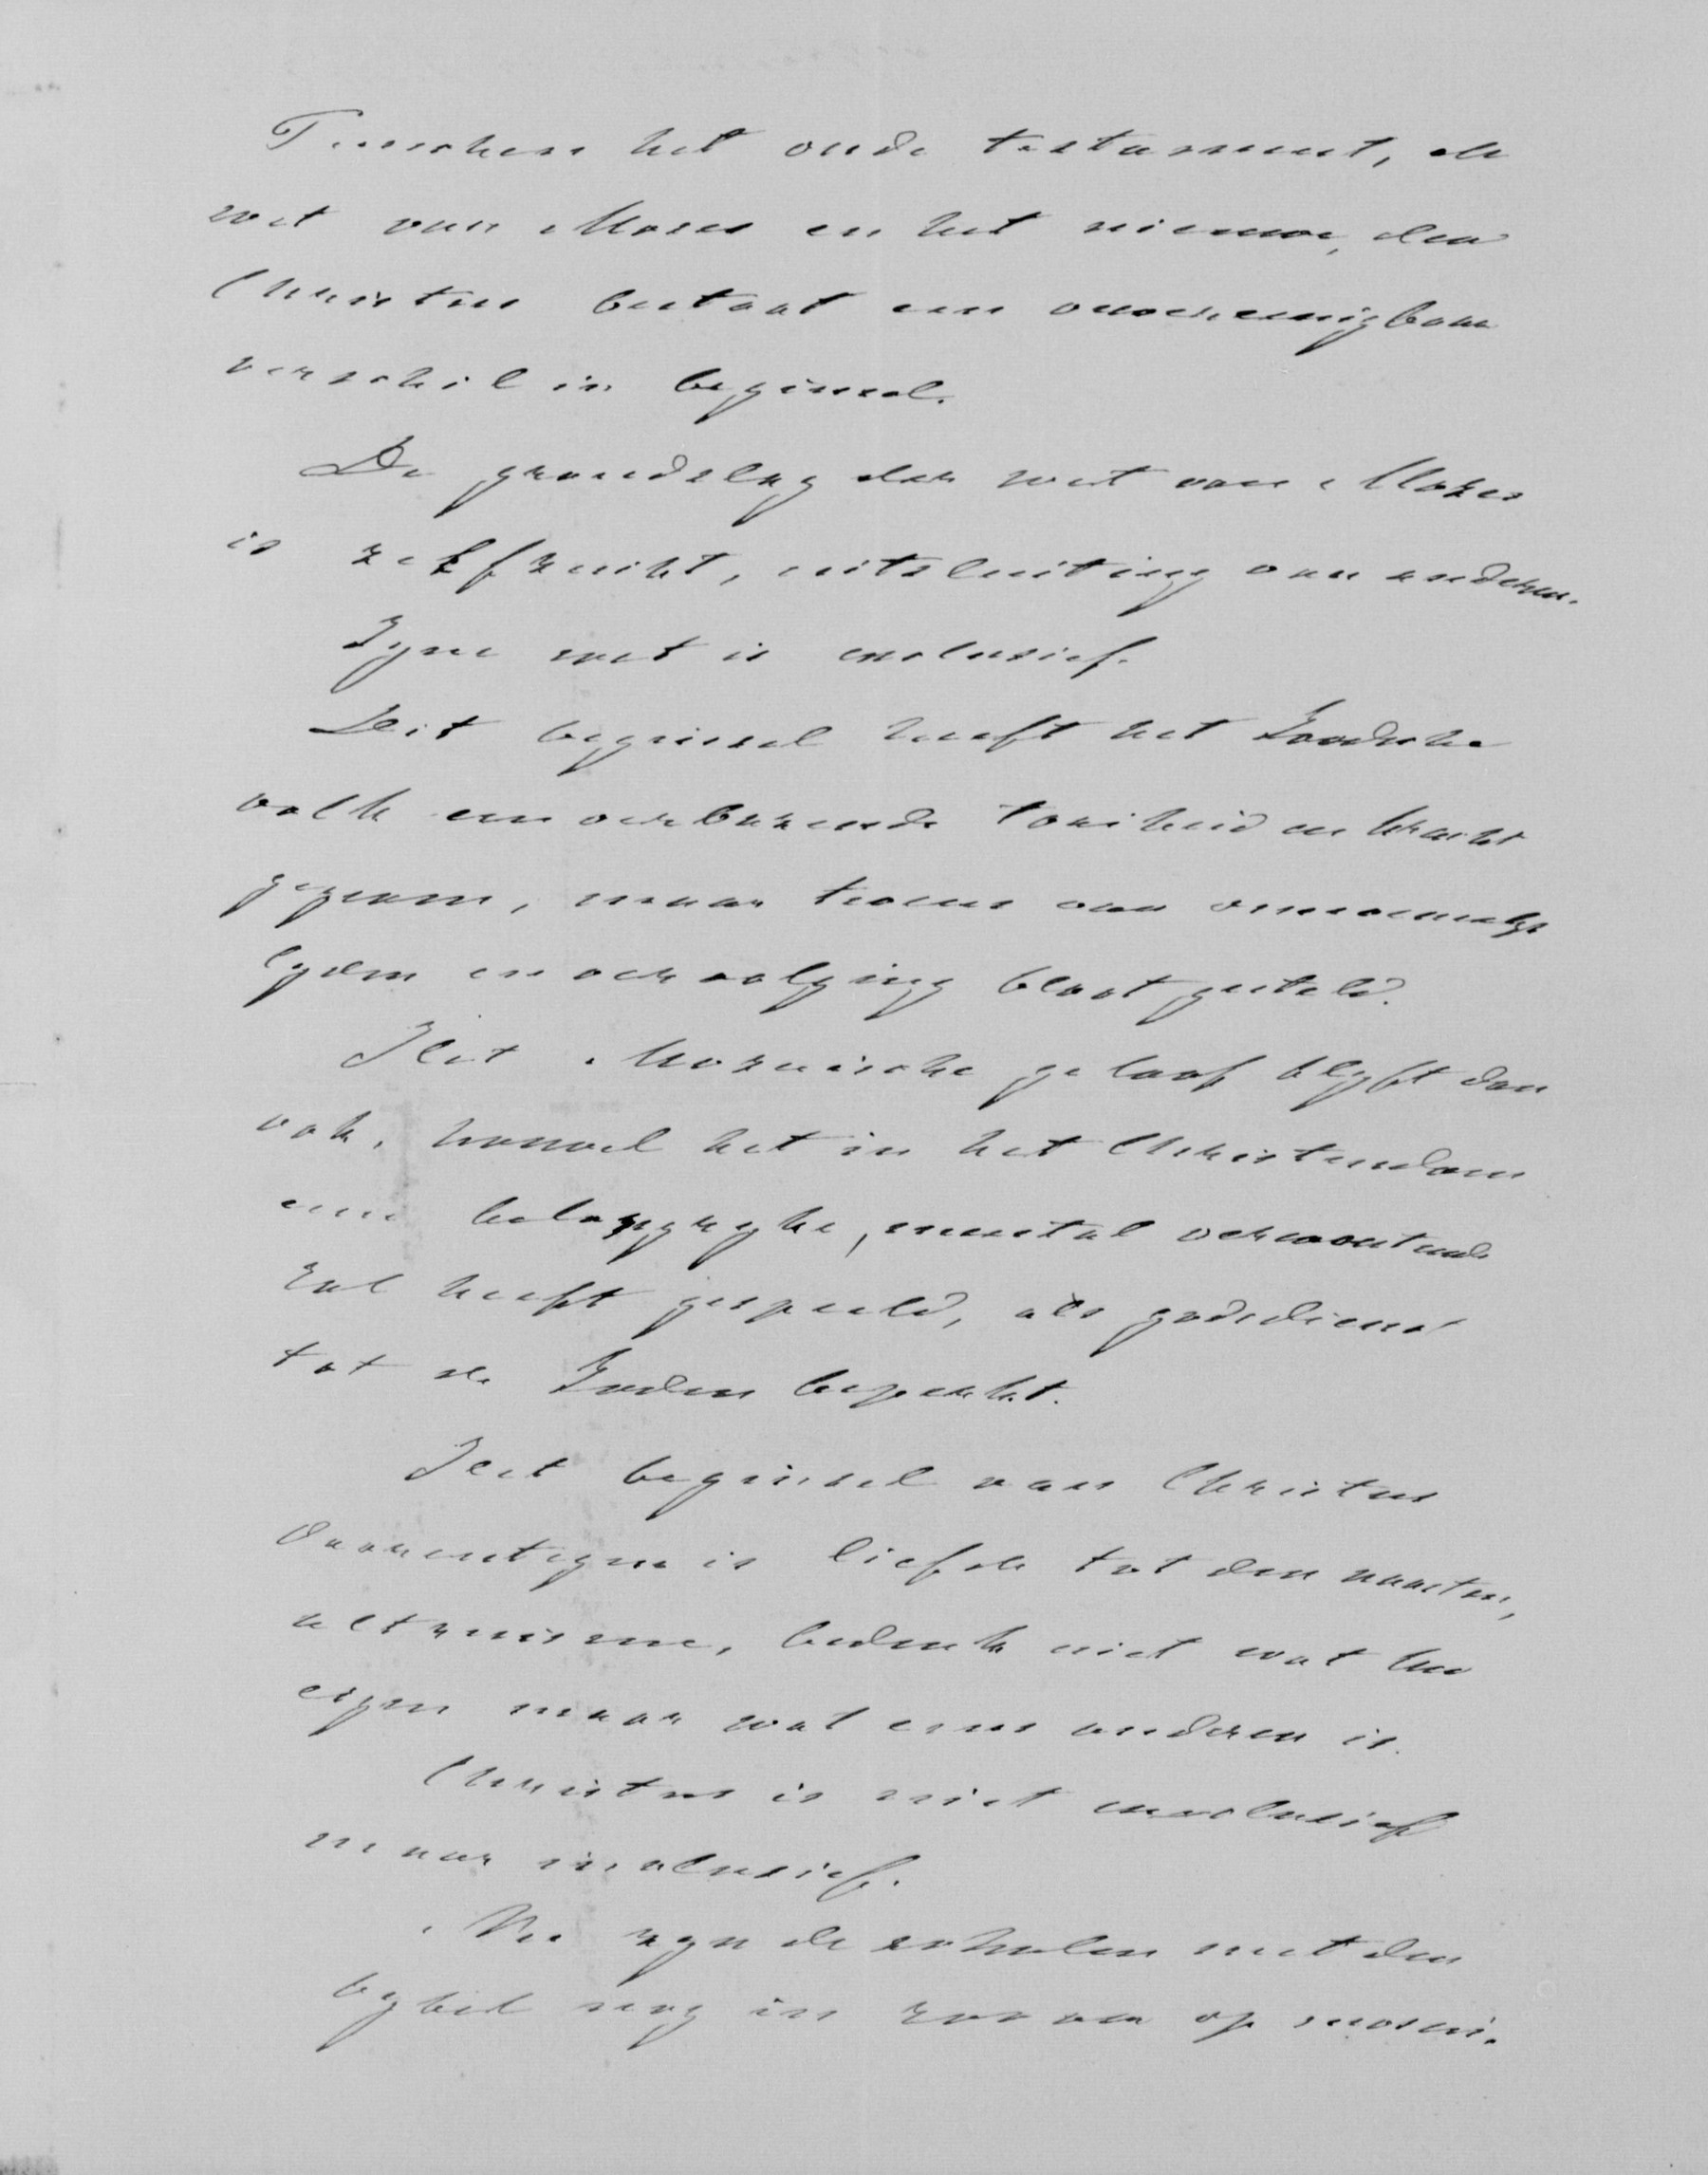 Tusschen het oude testament, de
wet van Mozes en het nieuwe, den
Christus bestaat een onvereenigbaar
verschil in beginsel.
De grondslag der wet van Mozes
is zelfzucht, uitsluiting van anderen.
Zyne wet is exclusief.
Dit beginsel heeft het Joodsche
volk een verbazende taaiheid en kracht
gegeven, maar tevens aan
lyden en vervolging bloot gesteld.
Het Mozaische geloof blyft dan
ook, hoewel het in het Christendom
eene belangryke, meestal verwoestende
rol heeft gespeeld, als godsdienst
tot de Joden beperkt.
Het beginsel van Christus
daarentegen is liefde tot den naasten,
altruisme, bedenk niet wat uw
eigen maar wat eens anderen is.
Christus is niet exclusief
maar inclusief.
Nu zyn de scholen met den
bybel nog in zoo ver op mozai-